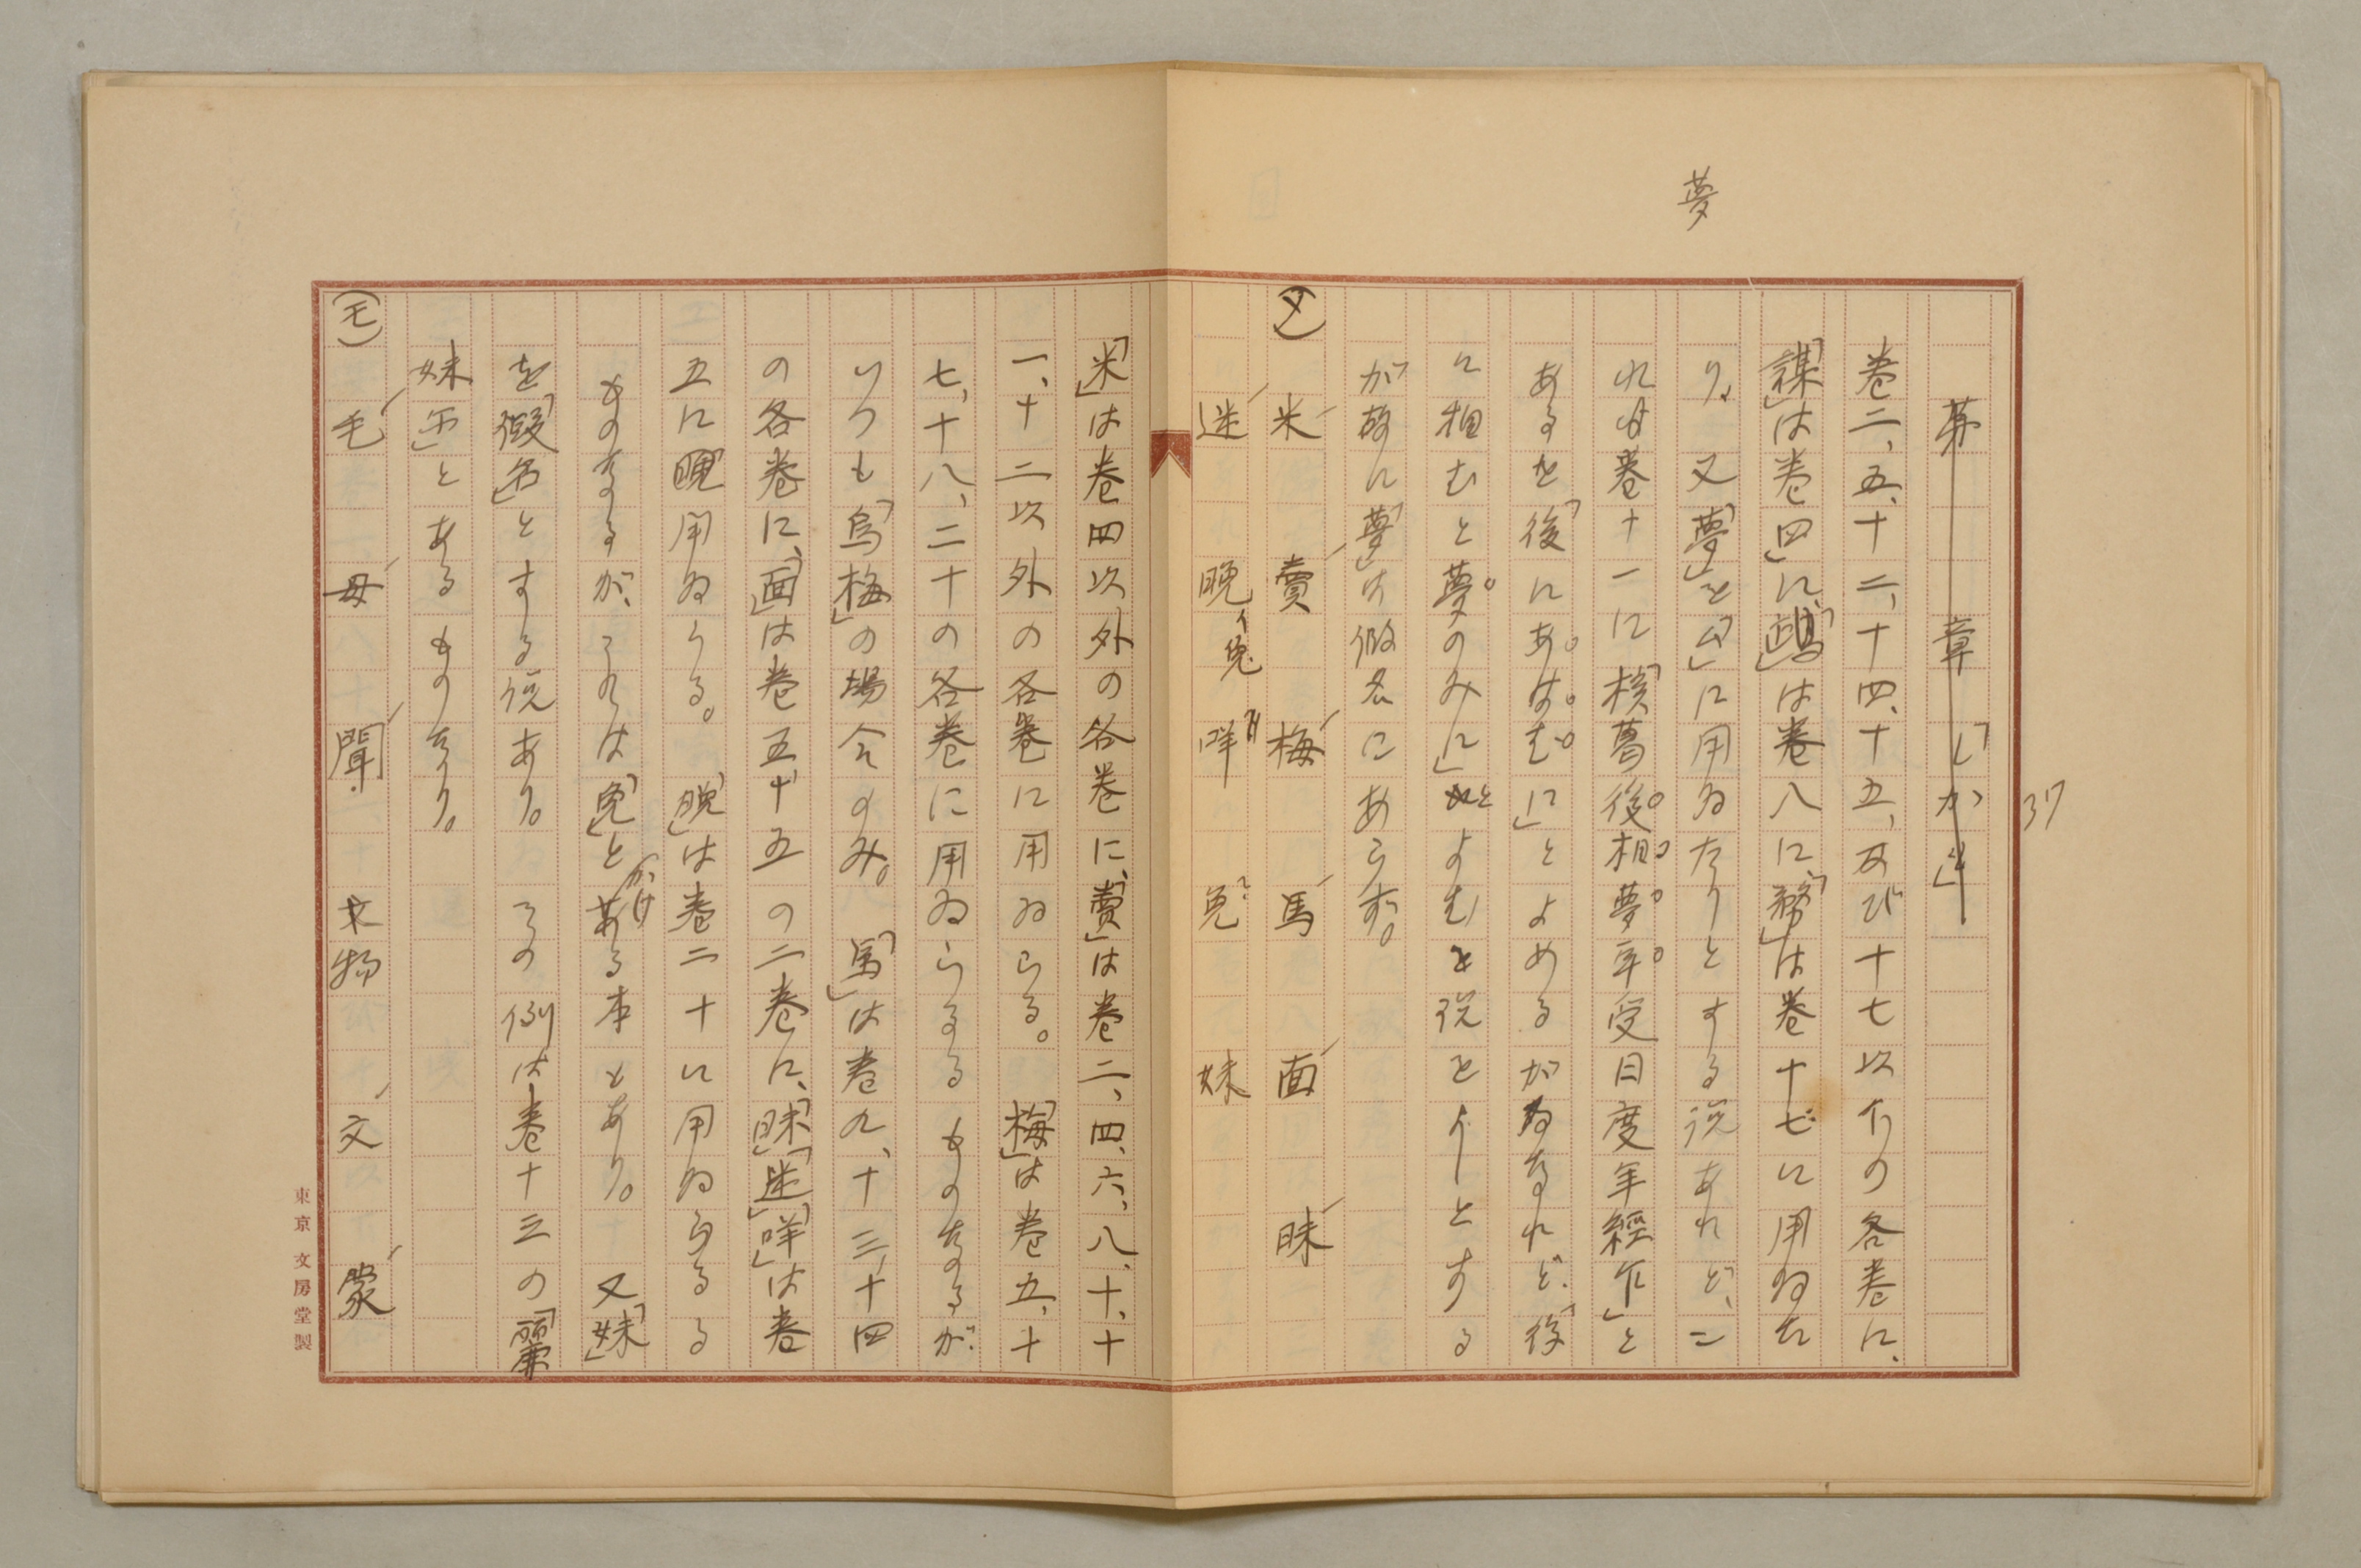 夢
37
第 章 「しが」
巻二、五、十二、十四、十五、及び十七以外の各巻に、
「謀」は巻四に、「鵡」は巻八に、「務」は巻十七に用ゐた
り。又「夢」を「ム」に用ゐたりとする説あれど、こ
れは巻十一に「核葛後相夢卒受日度年經乍」と
あるを「後にあはむ」にとよめるが為なれど、「後
に相むと夢のみに」とよむを説をよしとする
が故に「夢」は假名にあらず。
(メ)
米 賣 梅 馬 面 昧
迷 晩 イ兔 咩 免 妹
「米」は巻四以外の各巻に、「賣」は巻二、四、六、八、十、十
一、十二以外の各巻に用ゐらる。「梅」は巻五、十
七、十八、二十の各巻に用ゐらるるものなるが
いつも「烏梅」の場合のみ。「馬」は巻九、十三、十四
の各巻に、「面」は巻五十五の二巻に、「昧」「迷」「咩」は巻
五に用ゐらる。「晩」は巻二十に用ゐらるる
ものなるが、これは「免」とかける本もあり。又「妹」
を假名とする説あり。その例は巻十三の「麗
妹乍」とあるものなり。
(モ)
毛 母 聞 物 文 蒙
東京文房堂製